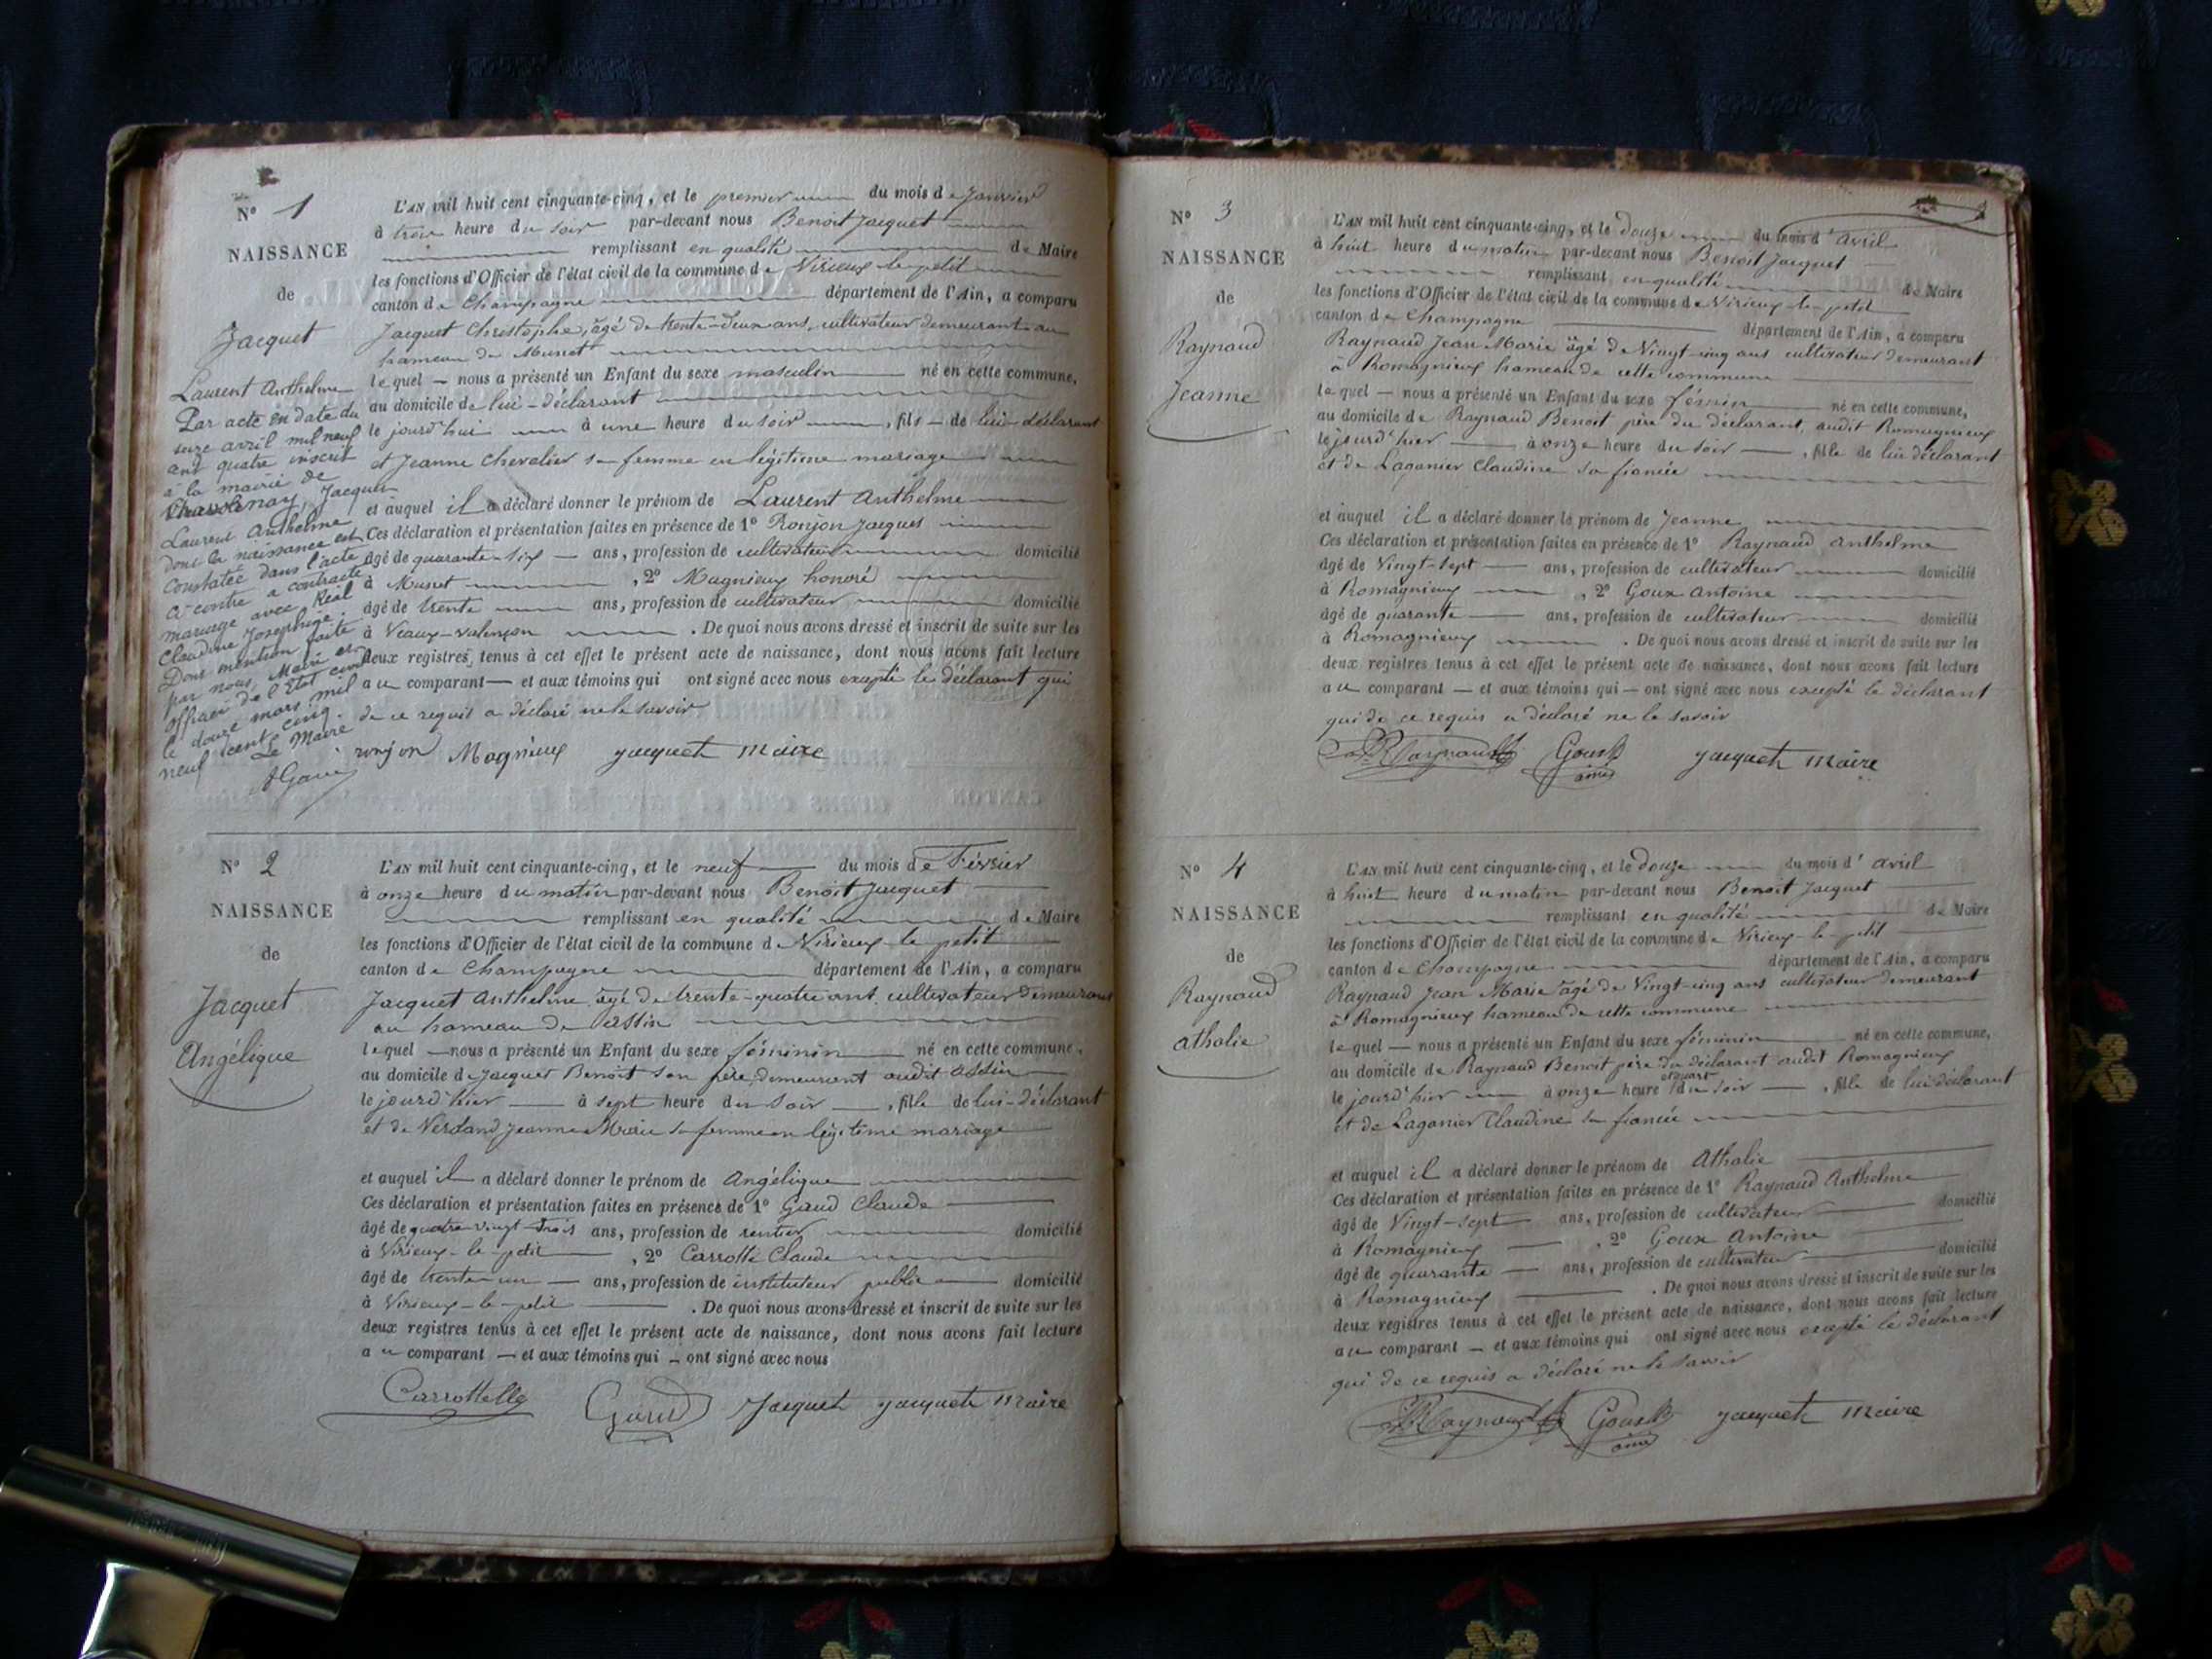 N° 1
NAISSANCE
de
Jacquet
Laurent Anthelme
Par acte en date du
onze avril mil neuf
cent quatre inscrit
à la mairie de
Chavornay, Jacquet
Laurent Anthelme
dont la naissance est
constatée dans l'acte
ci-contre a contracté
mariage avec Réal
Claudine Joséphine
Dont mention faite
par nous, Maire et
officier de l'Etat civil
le douze mars mil
neuf cent cinq.
Le Maire
L'AN mil huit cent cinquante-cinq, et le premier du mois de Janvier
à trois heure du soir par-devant nous Benoit Jacquet
remplissant en qualité de Maire
les fonctions d'Officier de l'état civil de la commune de Virieux le petit
canton de Champagne département de l'Ain, a comparu
Jacquet Christophe, âgé de trente-deux ans, cultivateur demeurant au
hameau de Munet
lequel — nous a présenté un Enfant du sexe masculin né en cette commune,
au domicile de lui-déclarant
le jourd'hui à une heure du soir, fils — de lui-déclarant
et Jeanne Chevalier sa femme en légitime mariage
et auquel il a déclaré donner le prénom de Laurent Anthelme
Ces déclaration et présentation faites en présence de 1° Ronjon Jacques
âgé de quarante-six — ans, profession de cultivateur domicilié
à Munet, 2° Magnieux honoré
âgé de trente ans, profession de cultivateur domicilié
à Veaux-valençon. De quoi nous avons dressé et inscrit de suite sur les
deux registres tenus à cet effet le présent acte de naissance, dont nous avons fait lecture
au comparant — et aux témoins qui ont signé avec nous excepté le déclarant qui
de ce requis a déclaré ne le savoir
ronjon Magnieux jacquet maire
N° 2
NAISSANCE
de
Jacquet
Angélique
L'AN mil huit cent cinquante-cinq, et le neuf du mois de Février
à onze heure du matin par-devant nous Benoit Jacquet
remplissant en qualité de Maire
les fonctions d'Officier de l'état civil de la commune de Virieux-le-petit
canton de Champagne département de l'Ain, a comparu
Jacquet Anthelme âgé de trente-quatre ans, cultivateur demeurant
au hameau de assin
lequel — nous a présenté un Enfant du sexe féminin né en cette commune,
au domicile de Jacquet Benoit son père, demeurant audit assin
le jourd'hier à sept heure du soir, fille de lui-déclarant
et de Jeanne Marie sa femme en légitime mariage
et auquel il a déclaré donner le prénom de Angélique
Ces déclaration et présentation faites en présence de 1° Gaud Claude
âgé de quatre-vingt-trois ans, profession de rentier domicilié
à Virieux-le-petit, 2° Carrotte Claude
âgé de trente-un — ans, profession de instituteur public domicilié
à Virieux-le-petit. De quoi nous avons dressé et inscrit de suite sur les
deux registres tenus à cet effet le présent acte de naissance, dont nous avons fait lecture
au comparant — et aux témoins qui — ont signé avec nous
Jacquet jacquet maire
N° 3
NAISSANCE
de
Raynaud
Jeanne
L'AN mil huit cent cinquante-cinq, et le douze du mois d'avril
à huit heure du matin par-devant nous Benoit Jacquet
remplissant en qualité de Maire
les fonctions d'Officier de l'état civil de la commune de Virieux-le-petit
canton de Champagne département de l'Ain, a comparu
Raynaud Jean Marie âgé de Vingt-cinq ans cultivateur demeurant
à Romagnieux hameau de cette commune
lequel — nous a présenté un Enfant du sexe féminin né en cette commune,
au domicile de Raynaud Benoit père du déclarant, audit Romagnieux
le jourd'hier à onze heure du soir, fille de lui déclarant
et de Laganier Claudine sa fiancée
et auquel il a déclaré donner le prénom de Jeanne
Ces déclaration et présentation faites en présence de 1° Raynaud anthelme
âgé de Vingt-sept ans, profession de cultivateur domicilié
à Romagnieux, 2° Goux Antoine
âgé de quarante ans, profession de cultivateur domicilié
à Romagnieux. De quoi nous avons dressé et inscrit de suite sur les
deux registres tenus à cet effet le présent acte de naissance, dont nous avons fait lecture
au comparant — et aux témoins qui — ont signé avec nous excepté le déclarant
qui de ce requis a déclaré ne le savoir
Raynaud Goux jacquet maire
N° 4
NAISSANCE
de
Raynaud
athalie
L'AN mil huit cent cinquante-cinq, et le douze du mois d'avril
à huit heure du matin par-devant nous Benoit Jacquet
remplissant en qualité de Maire
les fonctions d'Officier de l'état civil de la commune de Virieux-le-petit
canton de Champagne département de l'Ain, a comparu
Raynaud Jean Marie âgé de Vingt-cinq ans cultivateur demeurant
à Romagnieux hameau de cette commune
lequel — nous a présenté un Enfant du sexe féminin né en cette commune,
au domicile de Raynaud Benoit père du déclarant audit Romagnieux
le jourd'hier à onze heure et quart du soir, fille de lui déclarant
et de Laganier Claudine sa fiancée
et auquel il a déclaré donner le prénom de Athalie
Ces déclaration et présentation faites en présence de 1° Raynaud Anthelme
âgé de Vingt-sept ans, profession de cultivateur domicilié
à Romagnieux, 2° Goux Antoine
âgé de quarante ans, profession de cultivateur domicilié
à Romagnieux. De quoi nous avons dressé et inscrit de suite sur les
deux registres tenus à cet effet le présent acte de naissance, dont nous avons fait lecture
au comparant — et aux témoins qui ont signé avec nous excepté le déclarant
qui de ce requis a déclaré ne le savoir
Raynaud Goux jacquet maire